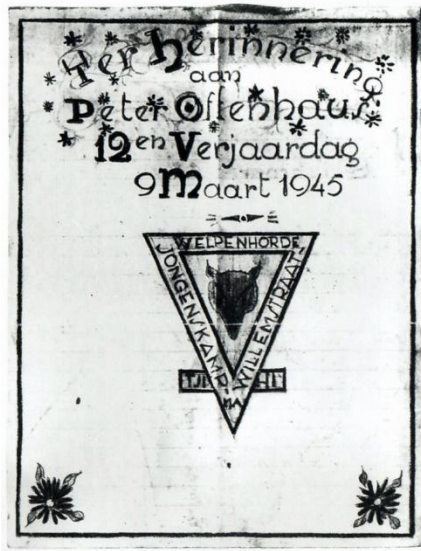 Ter Herinnering
aan
Peter Ostenhaus'
12en Verjaardag
9 Maart 1945
WELPENHORDE
JONGENSKAMP
WILLEMSTRAAT
TJIMAHI